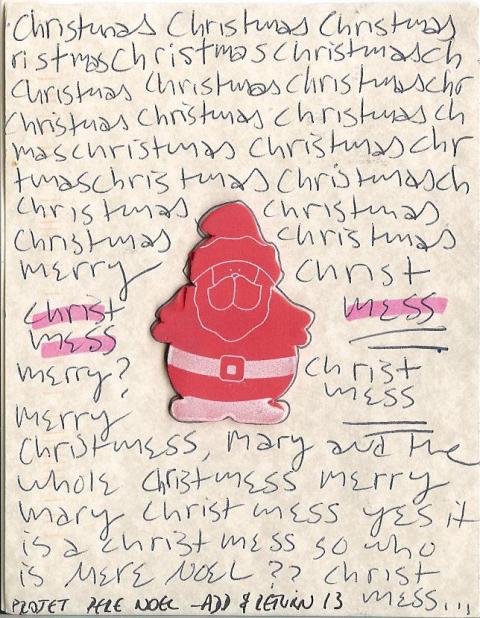 Christmas Christmas Christmas
ristmas Christmas Christmasch
Christmas Christmas Christmaschr
Christmas Christmas Christmas Ch
maschristmas Christmas Chr
tmaschristmas Christmasch
Christmas Christmas
Christmas Christmas
merry Christ
Christ mess
mess
merry? Christ
merry mess
Christmess, Mary and the
whole Christmess merry
mary christ mess yes it
is a christ mess so who
is MERE NOEL?? Christ
mess...
PÈRE NOEL - ADD & RETURN 13